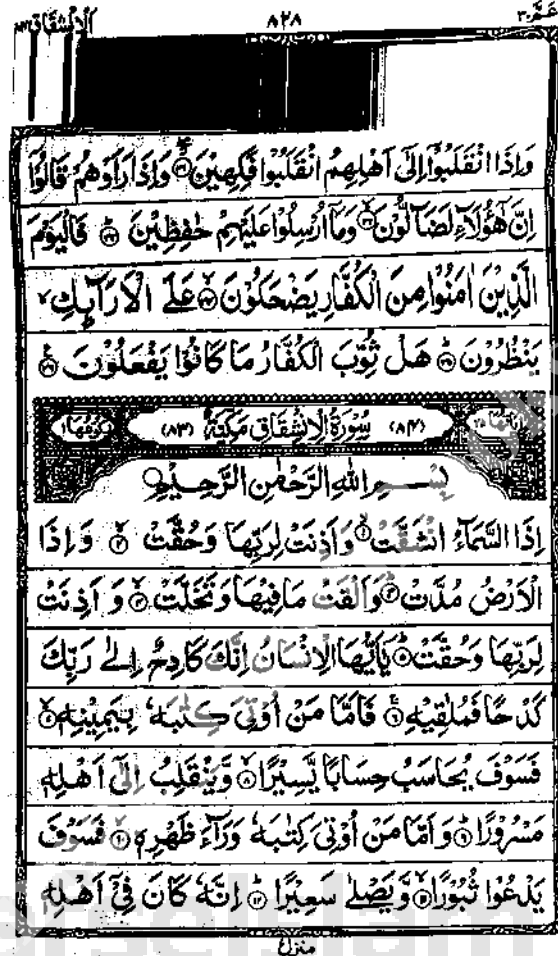 عَمَّ ٣٠ ٨٢٨ اَلْاِنْشِقَاق ٨٤
وَاِذَا انْقَلَبُوْۤا اِلٰۤى اَهْلِهِمُ انْقَلَبُوْا فَكِهِيْنَ ۝٣١ وَاِذَا رَاَوْهُمْ قَالُوْۤا
اِنَّ هٰۤؤُلَآءِ لَضَآلُّوْنَ ۝٣٢ وَمَاۤ اُرْسِلُوْا عَلَيْهِمْ حٰفِظِيْنَ ۝٣٣ فَالْيَوْمَ
الَّذِيْنَ اٰمَنُوْا مِنَ الْكُفَّارِ يَضْحَكُوْنَ ۝٣٤ عَلَى الْاَرَآئِكِ
يَنْظُرُوْنَ ۝٣٥ هَلْ ثُوِّبَ الْكُفَّارُ مَا كَانُوْا يَفْعَلُوْنَ ۝٣٦
اٰيَاتُهَا ٢٥ (٨٤) سُوْرَةُ الْاِنْشِقَاقِ مَكِّيَّةٌ (٨٣) رُكُوْعُهَا ١
بِسْمِ اللهِ الرَّحْمٰنِ الرَّحِيْمِ
اِذَا السَّمَآءُ انْشَقَّتْ ۝١ وَاَذِنَتْ لِرَبِّهَا وَحُقَّتْ ۝٢ وَاِذَا
الْاَرْضُ مُدَّتْ ۝٣ وَاَلْقَتْ مَا فِيْهَا وَتَخَلَّتْ ۝٤ وَاَذِنَتْ
لِرَبِّهَا وَحُقَّتْ ۝٥ يٰۤاَيُّهَا الْاِنْسَانُ اِنَّكَ كَادِحٌ اِلٰى رَبِّكَ
كَدْحًا فَمُلٰقِيْهِ ۝٦ فَاَمَّا مَنْ اُوْتِيَ كِتٰبَهٗ بِيَمِيْنِهٖ ۝٧
فَسَوْفَ يُحَاسَبُ حِسَابًا يَّسِيْرًا ۝٨ وَّيَنْقَلِبُ اِلٰۤى اَهْلِهٖ
مَسْرُوْرًا ۝٩ وَاَمَّا مَنْ اُوْتِيَ كِتٰبَهٗ وَرَآءَ ظَهْرِهٖ ۝١٠ فَسَوْفَ
يَدْعُوْا ثُبُوْرًا ۝١١ وَّيَصْلٰى سَعِيْرًا ۝١٢ اِنَّهٗ كَانَ فِيْۤ اَهْلِهٖ
منزل